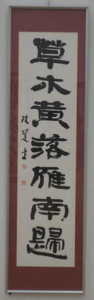 草木黄落雁南歸